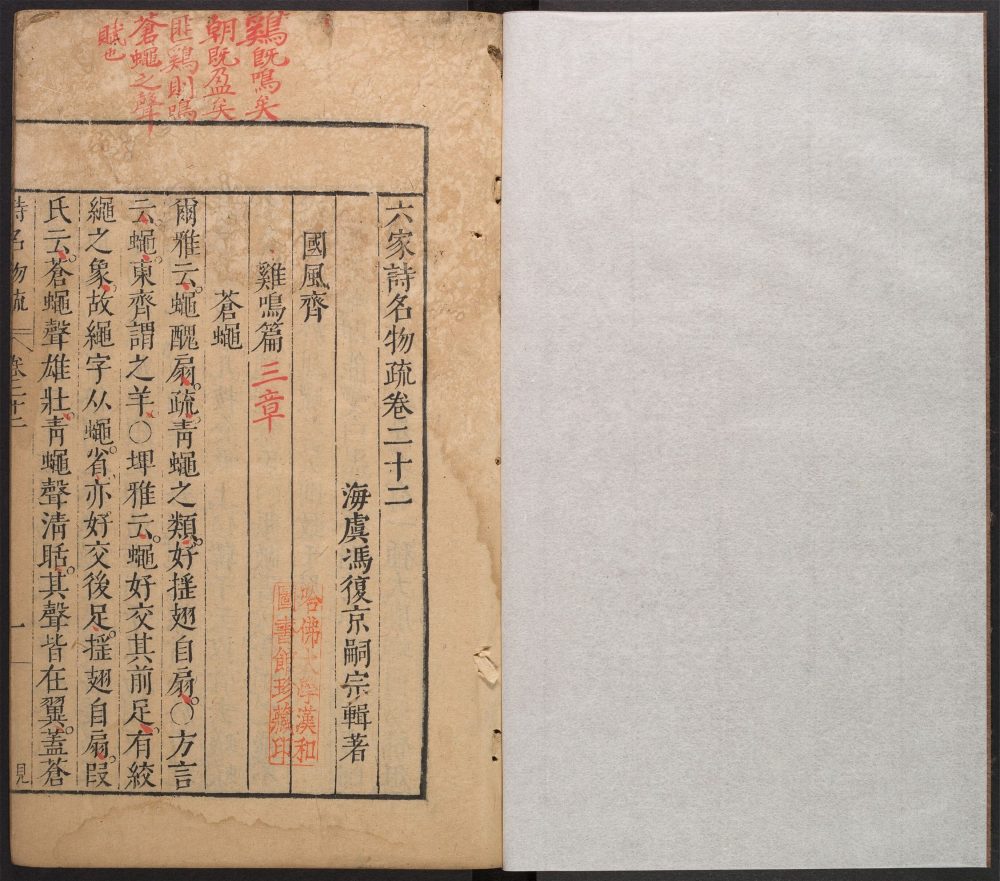 鷄旣鳴矣
朝旣盈矣
匪鷄則鳴
蒼蠅之聲
賦也
六家詩名物疏卷二十二
海虞馮復京嗣宗輯著
國風齊
雞鳴篇三章
蒼蠅
爾雅云蠅醜扇疏靑蠅之類好揺翅自扇〇方言
云蠅東齊謂之羊〇埤雅云蠅好交其前足有絞
繩之象故繩字从蠅省亦好交後足揺翅自扇段
氏云蒼蠅聲雄壯靑蠅聲清聒其聲皆在翼蓋蒼
詩名物疏 卷二十二 一
哈佛大學漢和
圖書館珍藏印